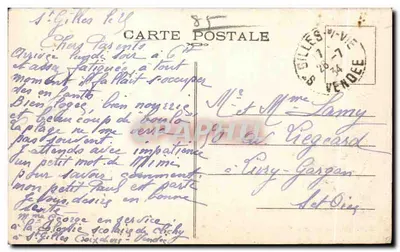 St Gilles le 21
85
CARTE POSTALE
St GILLES-s/-VIE
7-7
34
VENDÉE
Chers Parents
Arrivée lundi soir à 6 H
et assez fatiguée à tout
moment il fallait s'occuper
des enfants
Bien logée, bien nourrie
et beaucoup de boulot
la plage ne me voit
pas souvent.
J'attends avec impatience
un petit mot de Mimi
pour savoir comment
mon petit Paul est parti
Je vous désire en bonne
santé
Mme George en service
à la colonie scolaire de Clichy
à St Gilles Croix de Vie Vendée
Mr et Mme Lamy
80 rue Liégeard
Livry-Gargan
S et Oise